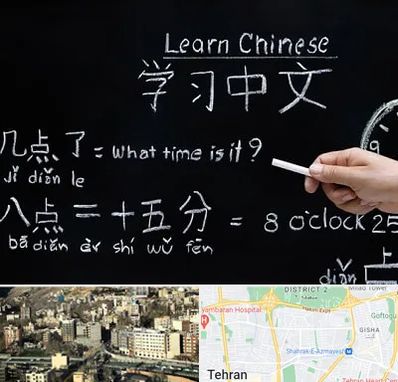 Learn Chinese
学习中文
几点了 = What time is it?
Jǐ diǎn le
八点二十五分 = 8 o'clock 25
bā diǎn èr shí wǔ fēn
9
上
diǎn
DISTRICT 2
Milad Tower
yambaran Hospital
Goftogu
GISHA
Shahrak-E-Azmayesh
Tehran
Tehran Heart Cen